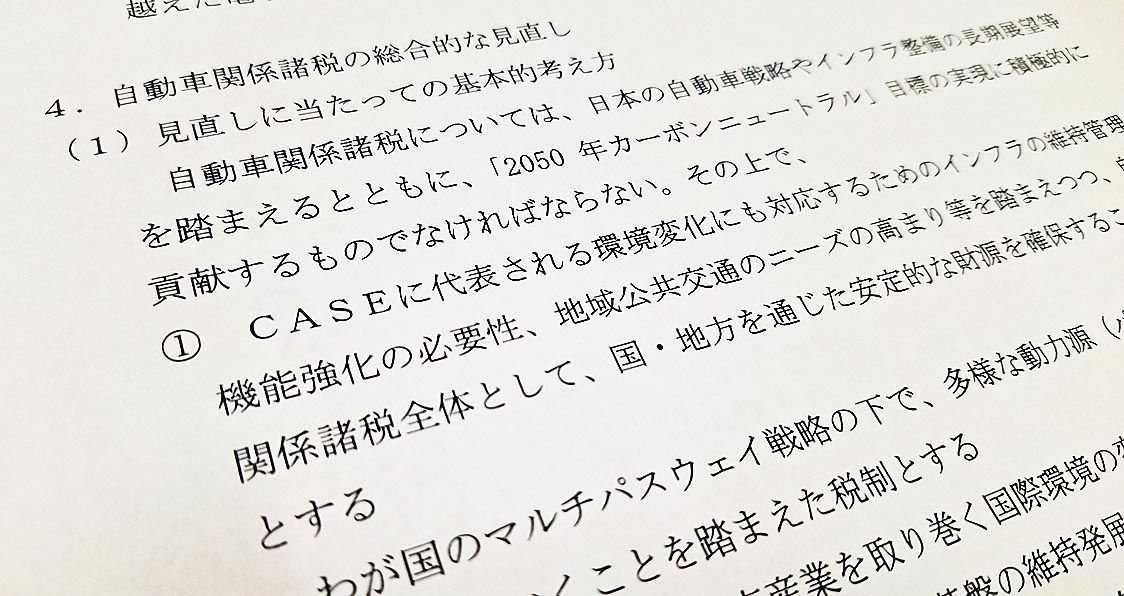 越えた
4．自動車関係諸税の総合的な見直し
（1）見直しに当たっての基本的考え方
自動車関係諸税については、日本の自動車戦略やインフラ整備の長期展望等
を踏まえるとともに、「2050 年カーボンニュートラル」目標の実現に積極的に
貢献するものでなければならない。その上で、
① ＣＡＳＥに代表される環境変化にも対応するためのインフラの維持管理
機能強化の必要性、地域公共交通のニーズの高まり等を踏まえつつ、
関係諸税全体として、国・地方を通じた安定的な財源を確保するこ
とする
わが国のマルチパスウェイ戦略の下で、多様な動力源（
くことを踏まえた税制とする
産業を取り巻く国際環境の変
基盤の維持発展